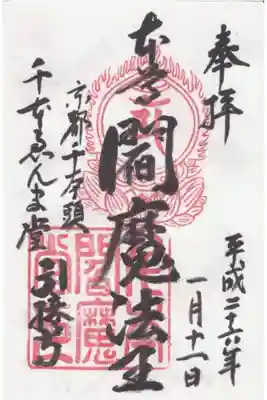 奉拝
平成二十六年
一月十一日
本尊 閻魔法王
京都千本頭
千本ゑんま堂
引接寺